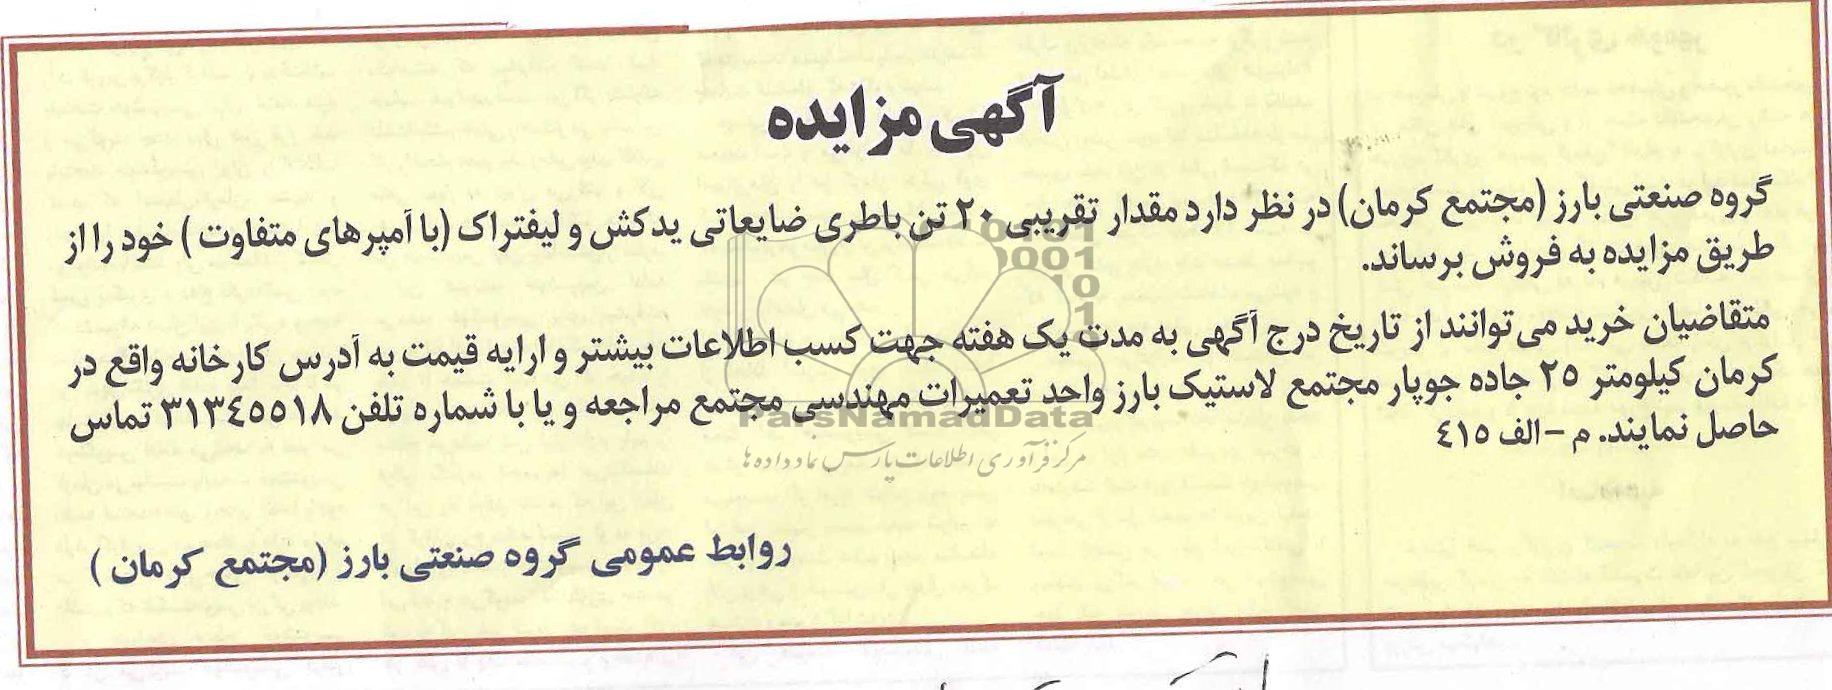 آگهی مزایده
گروه صنعتی بارز (مجتمع کرمان) در نظر دارد مقدار تقریبی ۲۰ تن باطری ضایعاتی یدکش و لیفتراک (با آمپرهای متفاوت) خود را از
طریق مزایده به فروش برساند.
متقاضیان خرید می توانند از تاریخ درج آگهی به مدت یک هفته جهت کسب اطلاعات بیشتر و ارایه قیمت به آدرس کارخانه واقع در
کرمان کیلومتر ۲۵ جاده جوپار مجتمع لاستیک بارز واحد تعمیرات مهندسی مجتمع مراجعه و یا با شماره تلفن ۳۱۳٤٥٥۱۸ تماس
حاصل نمایند. م - الف ٤١٥
ParsNamadData
مرکز فرآوری اطلاعات پارس نماد داده ها
روابط عمومی گروه صنعتی بارز (مجتمع کرمان)